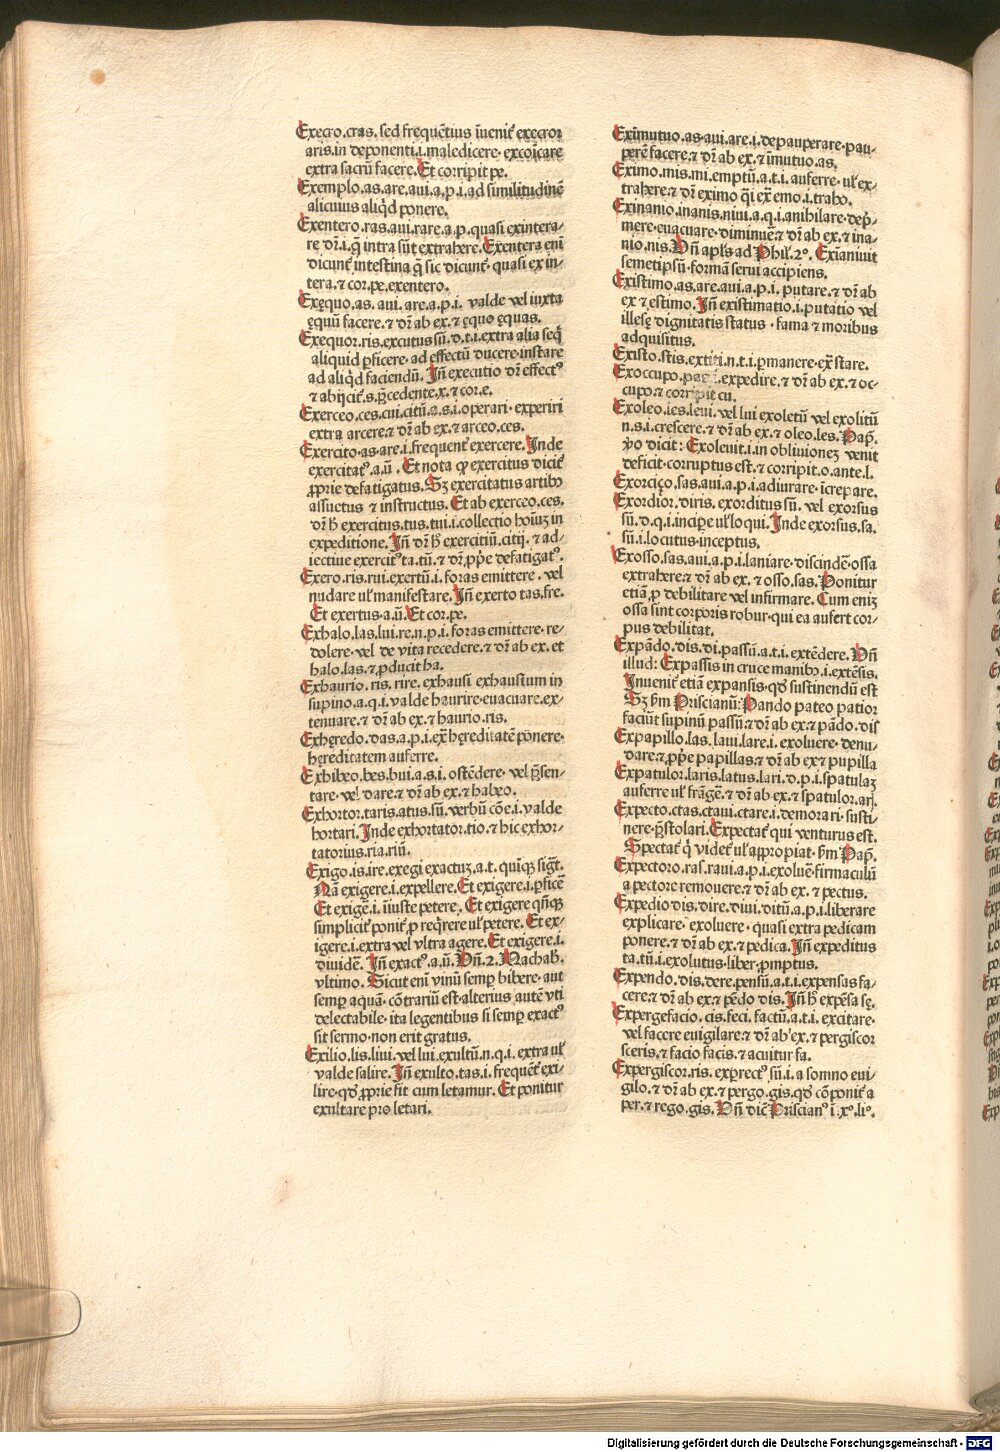 Execro.cras. sed frequētius īuenit̄ execror
aris.in deponenti.i.maledicere. excōicare
extra sacrū facere. Et corripit pe.
Exemplo.as.are.aui.a.p.i.ad similitudinē
alicuius aliqd̄ ponere.
Exentero.ras.aui.rare.a.p.quasi exintera⸗
re dr̄.i.q̄ intra sūt extrahere. Exentera enī
dicunt̄ intestina q̄ sic dicunt̄. quasi ex in⸗
tera.⁊ cor.pe.exentero.
Exęquo.as.aui.are.a.p.i. valde vel iuxta
ęquū facere.⁊ dr̄ ab ex.⁊ ęquo ęquas.
Exequor.ris.excutus sū.d.t.i.extra alia seq̄
aliquid ꝑficere. ad effectū ducere.instare
ad aliqd̄ faciendū. Iñ executio dr̄ effectꝰ
⁊ abijcit̄.s.p̄cedente.x.⁊ cor.e.
Exerceo.ces.cui.citū.a.s.i.operari. experiri
extra arcere.⁊ dr̄ ab ex.⁊ arceo.ces.
Exercito.as.are.i.frequent̄ exercere. Inde
exercitatꝰ.a.ū. Et nota ꝙ exercitus dicit̄
ꝓprie defatigatus. Sꝫ exercitatus artibꝫ
assuetus ⁊ instructus. Et ab exerceo.ces.
dr̄ ħ exercitus.tus.tui.i.collectio hoīuꝫ in
expeditione. Iñ dr̄ ħ exercitiū.citij. ⁊ ad⸗
iectiue exercitꝰta.tū.⁊ dr̄.ꝓpe defatigatꝰ.
Exero.ris.rui.exertū.i.foras emittere. vel
nudare ul̄ manifestare. Iñ exerto tas.fre.
Et exertus.a.ū. Et cor.pe.
Exhalo.las.lui.re.n.p.i.foras emittere. re⸗
dolere. vel de vita recedere.⁊ dr̄ ab ex.et
halo.las.⁊ ꝓducit ha.
Exhaurio.ris.rire.exhausi exhaustum in
supino.a.q.i.valde haurire.euacuare.ex⸗
tenuare.⁊ dr̄ ab ex.⁊ haurio.ris.
Exhęredo.das.a.p.i.ex̄ hęreditatē ponere.
hęreditatem auferre.
Exhibeo.bes.bui.a.s.i.ostēdere. vel p̄sen⸗
tare. vel dare.⁊ dr̄ ab ex.⁊ habeo.
Exhortor.taris.atus.sū. verbū cōe.i.valde
hortari. Inde exhortator.tio.⁊ hic exhor⸗
tatorius.ria.riū.
Exigo.is.ire.exegi exactuꝫ.a.t. quīqꝫ sigt̄.
Nā exigere.i.expellere. Et exigere.i.ꝑficē
Et exigē.i.īiuste petere. Et exigere qn̄qꝫ
simplicit̄ ponit̄.ꝓ req̄rere ul̄ petere. Et ex⸗
igere.i.extra vel vltra agere. Et exigere.i.
diuidē. Iñ exactꝰ.a.ū. Vñ.2. Machab.
vltimo. Sicut enī vinū semꝑ bibere. aut
semꝑ aquā. cōtrariū est.alterius autē vti
delectabile. ita legentibus si semꝑ exactꝰ
sit sermo.non erit gratus.
Exilio.lis.liui.vel lui.exultū.n.q.i.extra ul̄
valde salire. Iñ exulto.tas.i.frequēt̄ exi⸗
lire.qđ ꝓprie fit cum letamur. Et ponitur
exultare pro letari.
Eximutuo.as.aui.are.i.depauperare.pau⸗
perē facere.⁊ dr̄ ab ex.⁊ īmutuo.as.
Eximo.mis.mi.emptū.a.t.i.auferre. ul̄ ex⸗
trahere.⁊ dr̄ eximo q̄i ex̄ emo.i.traho.
Exinanio.inanis.niui.a.q.i.anihilare.dep̄⸗
mere.euacuare.diminuē.⁊ dr̄ ab ex.⁊ ina⸗
nio.nis. Vñ apl̄s ad Phil̄.2º. Exīaniuit
semetipsū. formā serui accipiens.
Existimo.as.are.aui.a.p.i. putare.⁊ dr̄ ab
ex ⁊ estimo. Iñ existimatio.i.putatio vel
illesę dignitatis status. fama ⁊ moribus
adquisitus.
Existo.stis.extiti.n.t.i.ꝑmanere.ex̄ stare.
Exoccupo. .i.expedire.⁊ dr̄ ab ex.⁊ oc⸗
cupo.⁊ corripit cu.
Exoleo.les.leui.vel lui exoletū vel exolitū
n.s.i.crescere.⁊ dr̄ ab ex.⁊ oleo.les. Pap̄.
v̓o dicit: Exoleuit.i.in obliuioneꝫ venit
deficit.corruptus est.⁊ corripit.o.ante.l.
Exorciço.sas.aui.a.p.i.adiurare.īcrepare.
Exordior.diris.exorditus sū. vel exorsus
sū.d.q.i.incipe ul̄ loqui. Inde exorsus.sa.
sū.i.locutus.inceptus.
Exosso.sas.aui.a.p.i.laniare.discindē.ossa
extrahere.⁊ dr̄ ab ex.⁊ osso.sas. Ponitur
etiā ꝓ debilitare vel infirmare. Cum eniꝫ
ossa sint corporis robur.qui ea aufert cor⸗
pus debilitat.
Expādo.dis.di.passū.a.t.i.extēdere. Vñ
illud: Expassis in cruce manibꝫ.i.extēsis.
Inuenit̄ etiā expansis.qđ sustinendū est
Sꝫ ẜm Priscianū: Pando pateo patior
faciūt supinū passū.⁊ dr̄ ab ex.⁊ pādo.dis
Expapillo.las.laui.lare.i.exoluere. denu⸗
dare.⁊ ꝓpe papillas.⁊ dr̄ ab ex ⁊ pupilla
Expatulor.laris.latus.lari.d.p.i.spatulaꝫ
auferre ul̄ frāgē.⁊ dr̄ ab ex.⁊ spatulor.arį.
Expecto.ctas.ctaui.ctare.i.demorari.susti⸗
nere.p̄stolari. Expectat̄ qui venturus est.
Spectat̄ q̄ videt̄ ul̄ appropiat. ẜm Pap̄.
Expectoro.ras̄.raui.a.p.i.exoluē.firmaculū
a pectore remouere.⁊ dr̄ ab ex.⁊ pectus.
Expedio.dis.dire.diui.ditū.a.p.i.liberare
explicare. exoluere. quasi extra pedicam
ponere.⁊ dr̄ ab ex.⁊ pedica. Iñ expeditus
ta.tū.i.exolutus.liber.ꝓmptus.
Expendo.dis.dere.pensū.a.t.i.expensas fa⸗
cere.⁊ dr̄ ab ex.⁊ pēdo dis. Iñ ħ expēsa sę.
Expergefacio.cis.feci.factū.a.t.i.excitare.
vel facere euigilare.⁊ dr̄ ab ex.⁊ pergiscor
sceris.⁊ facio facis.⁊ acuitur fa.
Expergiscor.ris.exꝑrectꝰ sū.i.a somno eui⸗
gilo.⁊ dr̄ ab ex.⁊ pergo.gis.qđ cōponit̄ a
per.⁊ rego.gis. Vñ dic̄ Priscianꝰ ī.xº.liº.
Digitalisierung gefördert durch die Deutsche Forschungsgemeinschaft - DFG